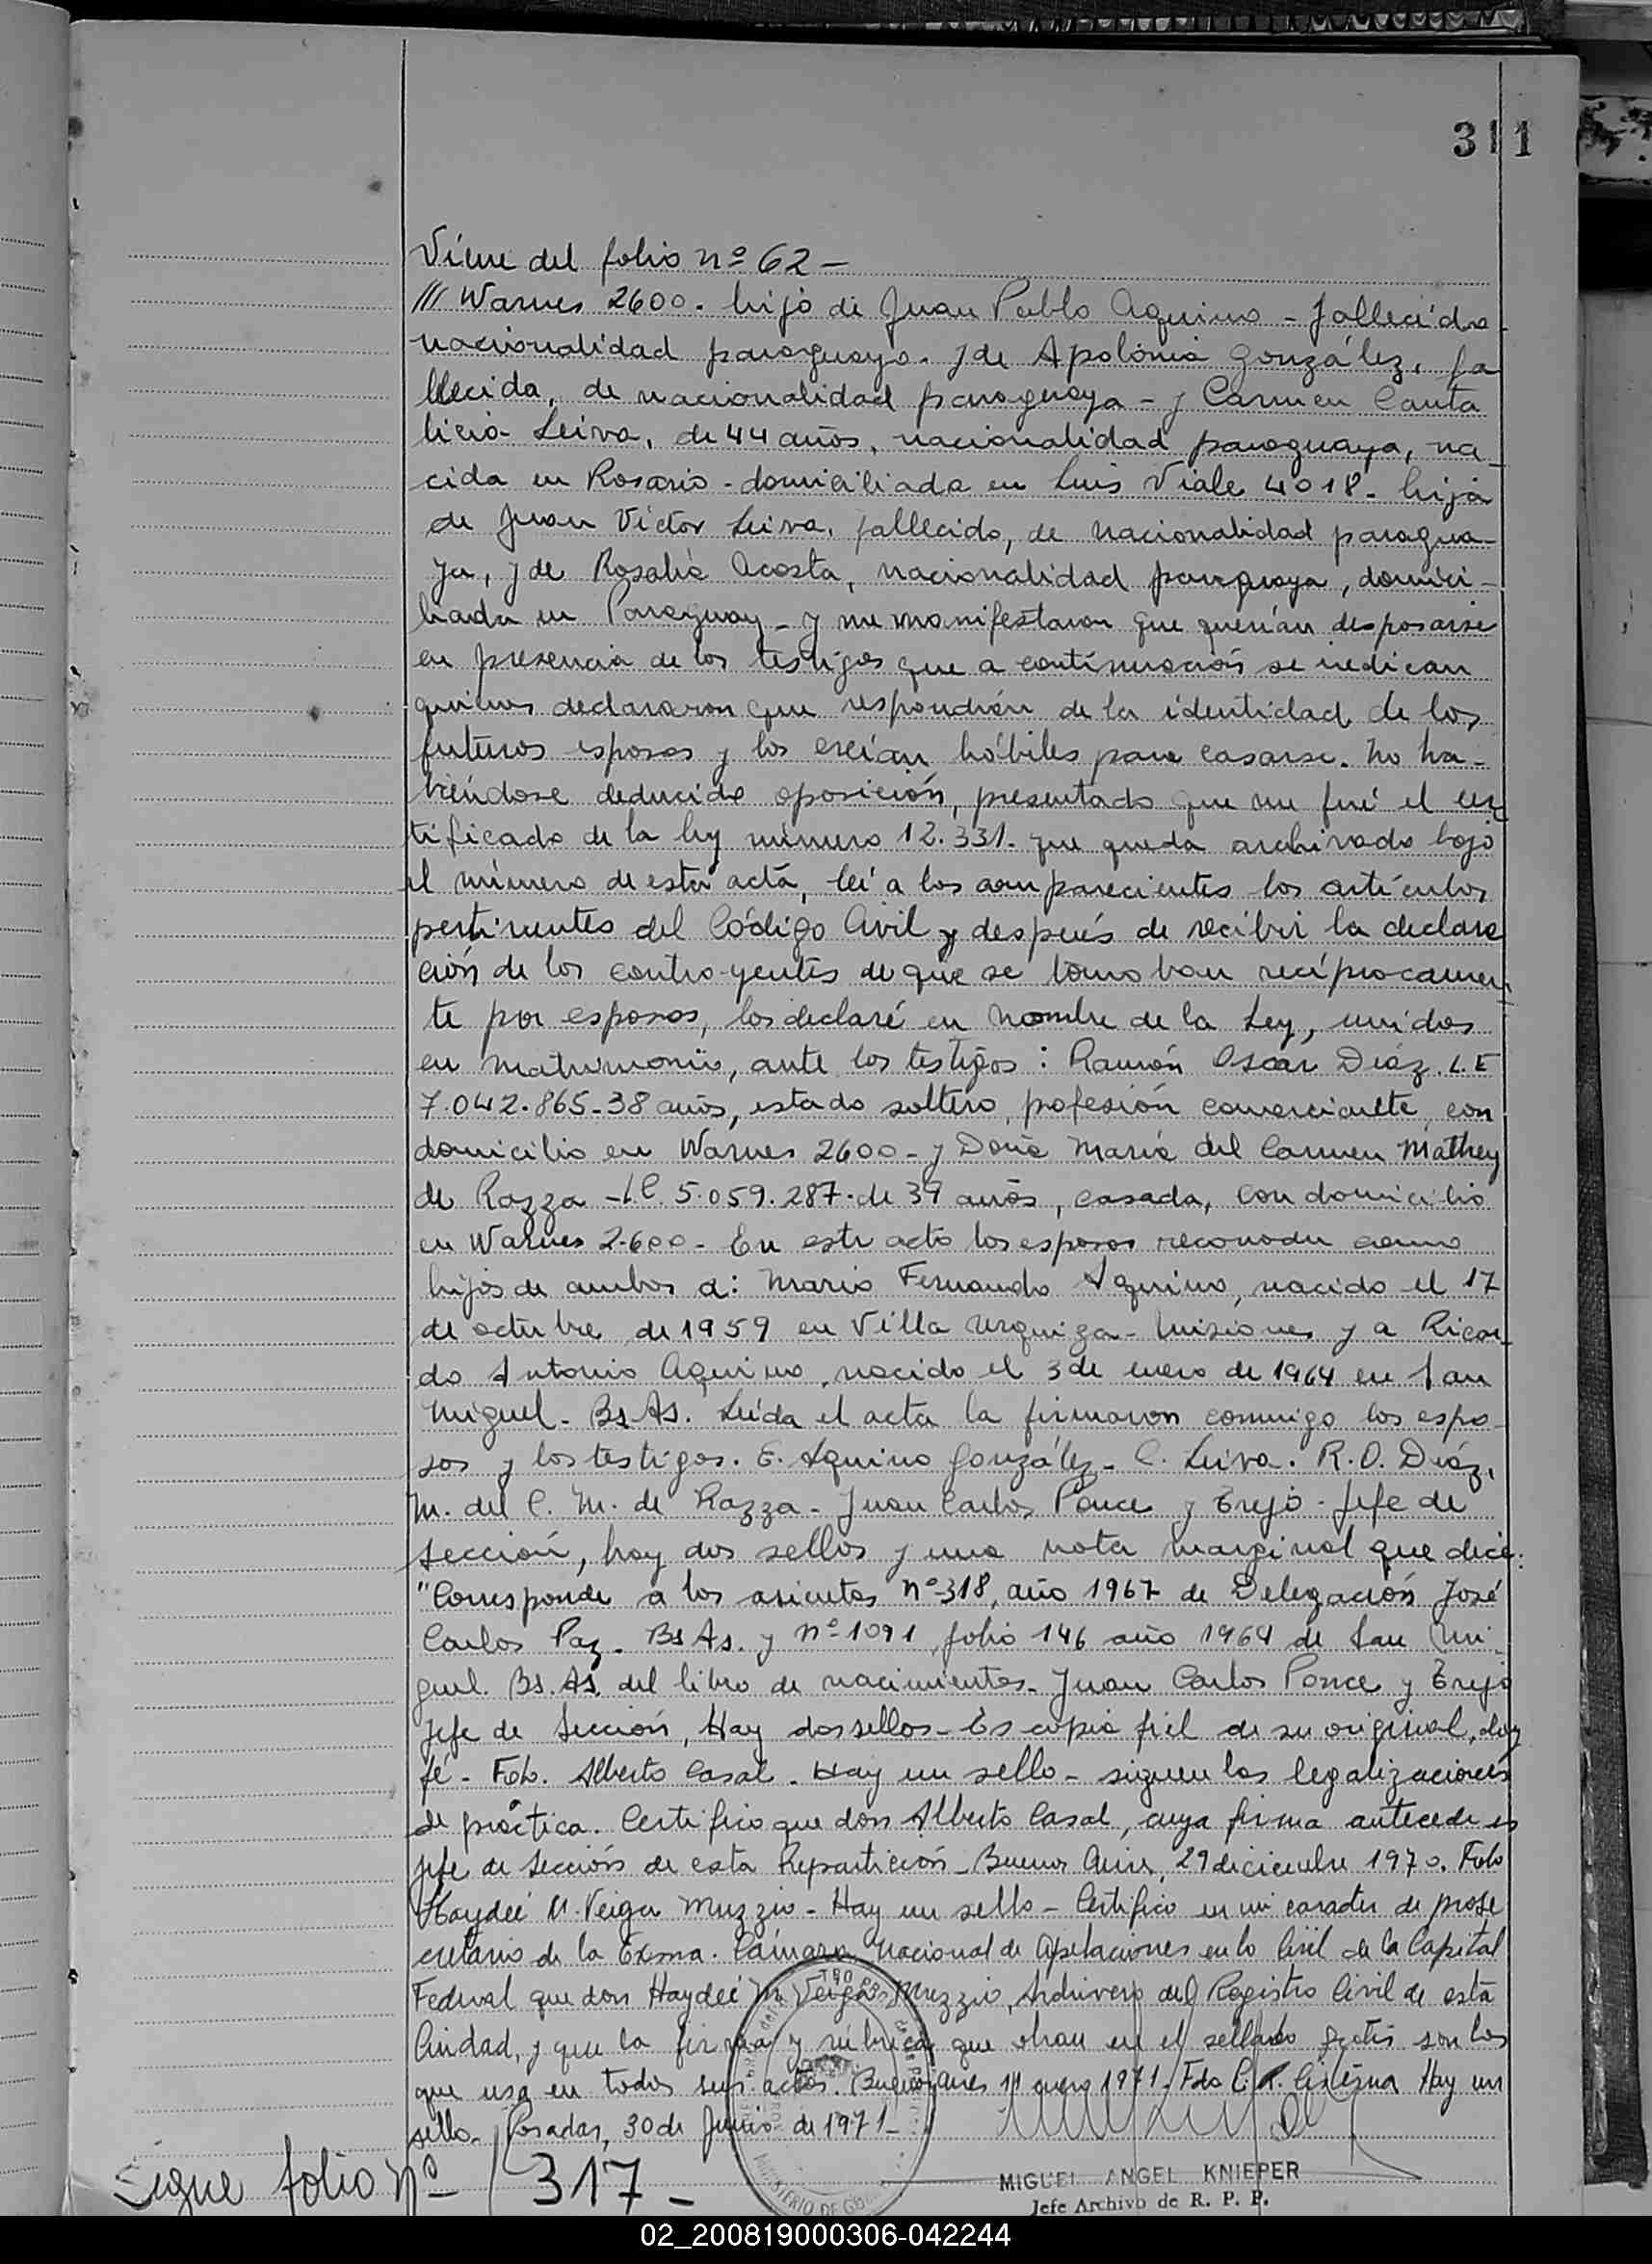 311
Viene del folio nº 62 -
/// Warnes 2600. hijo de Juan Pablo Aquino - fallecido
nacionalidad paraguaya. y de Apolonia González, fa
llecida, de nacionalidad paraguaya - y Carmen Canta
licia Leiva, de 44 años, nacionalidad paraguaya, na-
cida en Rosario - domiciliada en Luis Viale 4018. hija
de Juan Víctor Leiva, fallecido, de nacionalidad paragua-
ya, y de Rosalía Acosta, nacionalidad paraguaya, domici-
liada en Paraguay - y me manifestaron que querían desposarse
en presencia de los testigos que a continuación se indican
quienes declararon que respondían de la identidad de los
futuros esposos y los creían hábiles para casarse. No ha-
biéndose deducido oposición, presentado que me fué el cer
tificado de la ley número 12.331. que queda archivado bajo
el número de esta acta, leí a los comparecientes los artículos
pertinentes del Código Civil y después de recibir la declara
ción de los contrayentes de que se tomaban recíprocamen-
te por esposos, los declaré en nombre de la Ley, unidos
en matrimonio, ante los testigos: Ramón Oscar Díaz. L.E
7.042.865-38 años, estado soltero, profesión comerciante, con
domicilio en Warnes 2600 - y Doña María del Carmen Mathey
de Razza - L.C. 5.059.287. de 39 años, casada, con domicilio
en Warnes 2.600 - En este acto los esposos reconocen como
hijos de ambos a: Mario Fernando Aquino, nacido el 17
de octubre de 1959 en Villa Urquiza - Misiones y a Ricar-
do Antonio Aquino, nacido el 3 de enero de 1964 en San
Miguel - Bs. As. Leída el acta la firmaron conmigo los espo-
sos y los testigos. E. Aquino González - C. Leiva. R.O. Díaz,
M. del C. M. de Razza - Juan Carlos Ponce y Trejo - Jefe de
Sección, hay dos sellos y una nota marginal que dice:
"Corresponde a los asientos nº 318, año 1967 de Delegación José
Carlos Paz - Bs As. y nº 1091, folio 146 año 1964 de San Mi-
guel. Bs. As. del libro de nacimientos - Juan Carlos Ponce y Trejo
Jefe de Sección, Hay dos sellos - Es copia fiel de su original, doy
fé - Fdo. Alberto Casal. Hay un sello - siguen las legalizaciones
de práctica. Certifico que don Alberto Casal, cuya firma antecede es
jefe de sección de esta Repartición - Buenos Aires, 29 diciembre 1970. Fdo
Haydeé M. Veiga Muzzio - Hay un sello - Certifico en mi carácter de prose
cretario de la Exma. Cámara Nacional de Apelaciones en lo Civil de la Capital
Federal que don Haydeé M. Veiga Muzzio, Archivero del Registro Civil de esta
Ciudad, y que la firma y rúbrica que obran en el sellado son las
que usa en todos sus actos. Buenos Aires 11 enero 1971. Fdo Hay un
sello. Posadas, 30 de Junio de 1971 -
MIGUEL ANGEL KNIEPER
Jefe Archivo de R. P. P.
Sigue folio Nº 317 -
02_200819000306-042244